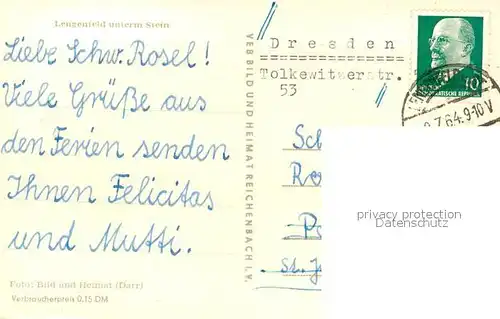 Lengenfeld unterm Stein
Liebe Schw. Rosel!
Viele Grüße aus
den Ferien senden
Ihnen Felicitas
und Mutti.
Foto: Bild und Heimat (Darr)
Verbraucherpreis 0,15 DM
VEB BILD UND HEIMAT REICHENBACH I. V.
Dresden
Tolkewitzerstr.
53
10
.7.64.9-10 V
privacy protection
Datenschutz